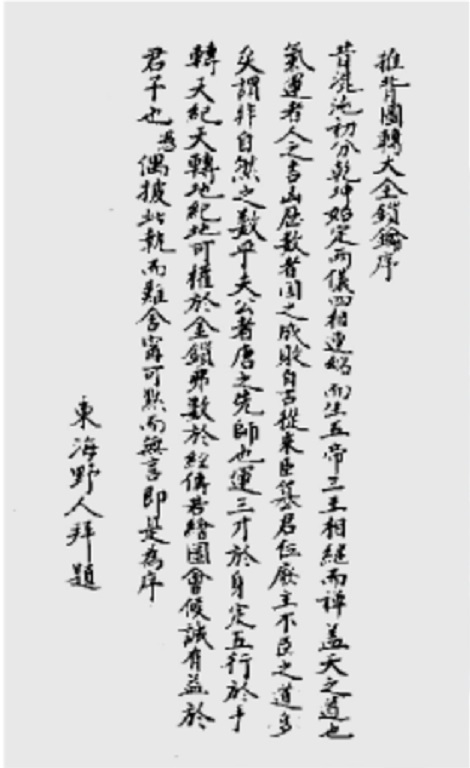 推背圖轉大金鎖鑰序
昔混沌初分乾坤始定兩儀四相連綿而生五帝三王相繼而禪蓋天之道也
氣運者人之吉凶歷數者國之成敗自古從來臣篡君位廢主不臣之道多
矣謂非自然之數乎夫公者唐之先師也運三才於身定五行於手
轉天紀天轉地紀地可權於金鎖昴數於經傳若繪圖會候誠有益於
君子也愚偶披此執而難舍寧可默而無言即是為序
東海野人拜題